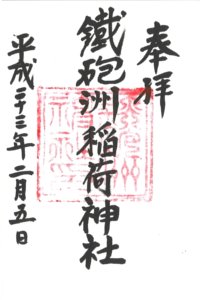 奉拝
鐵砲洲稲荷神社
平成二十三年二月五日